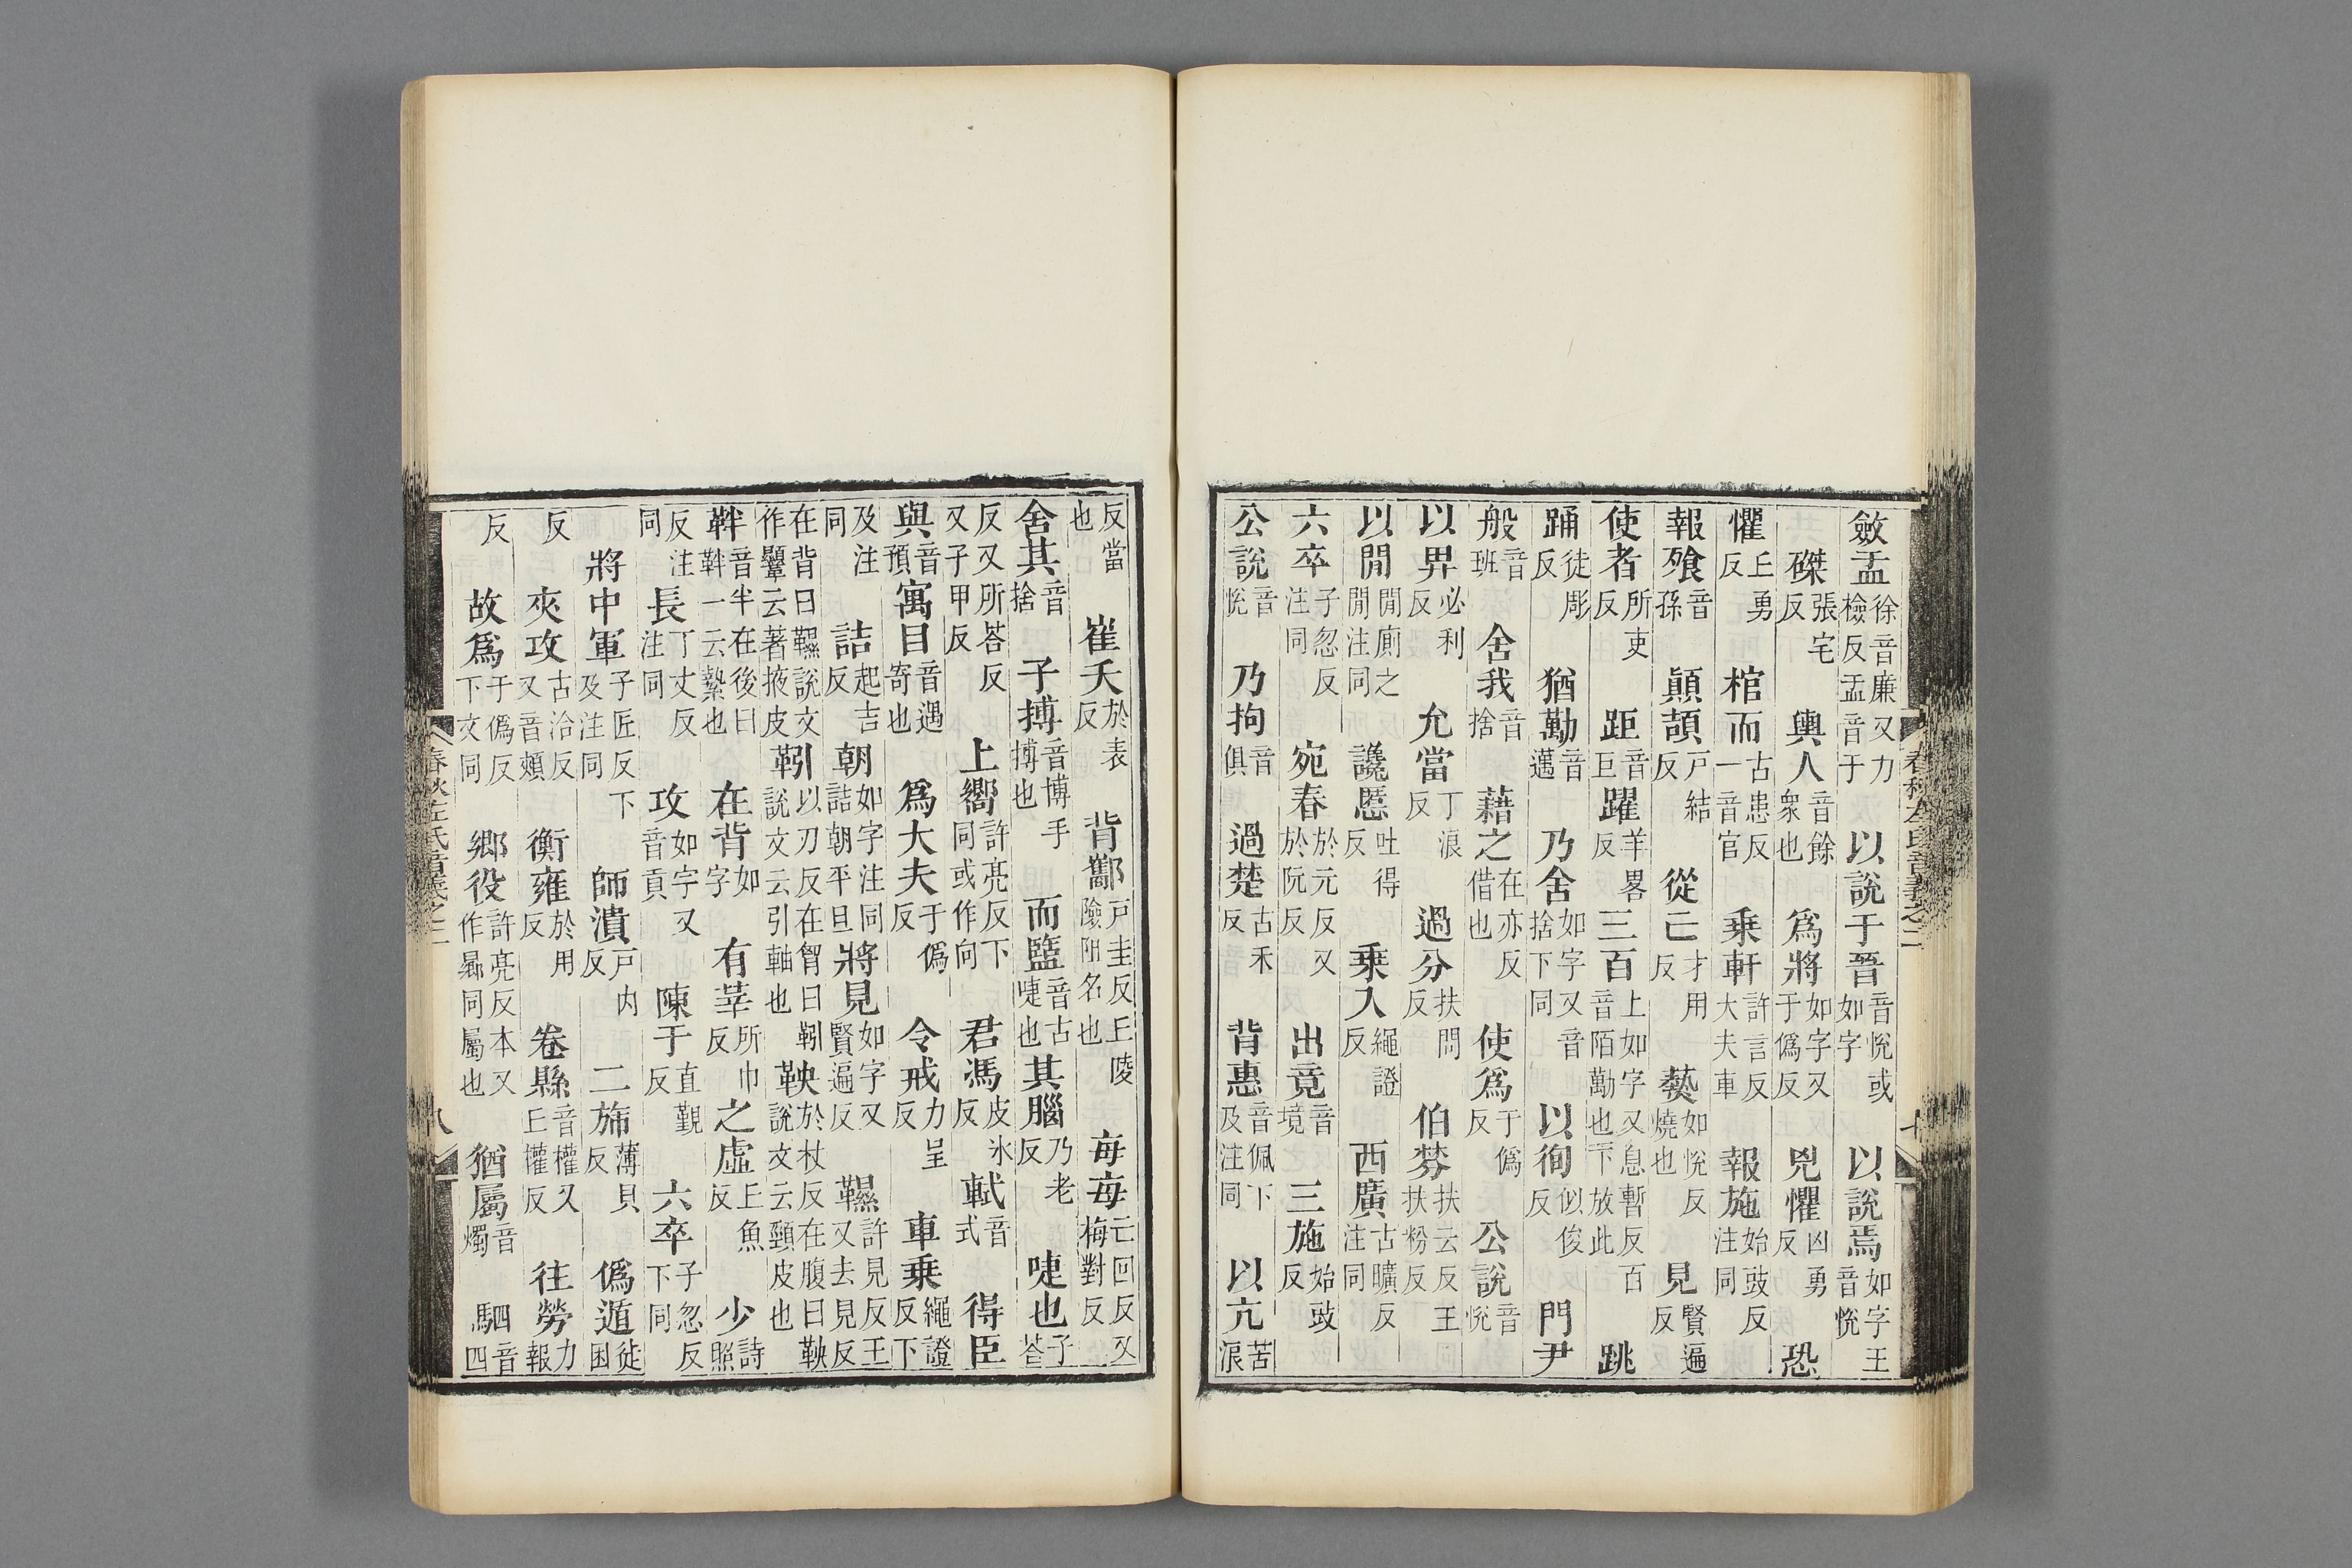 春秋左氏音義之二
斂盂徐音廉又力檢反盂音于以說于晉音悅或如字以說焉如字王音悅
磔張宅反輿人音餘衆也爲將如字又于僞反兇懼凶勇反恐
懼丘勇反棺而古患反一音官乗軒許言反大夫車報施始豉反注同
報飧音孫顛頡戸結反從亡才用反爇如悅反燒也見賢遍反
使者所吏反距音巨躍羊畧反三百上如字又息暫反百音陌勱也下放此跳
踊徒彫反猶勱音邁乃舍如字又音捨下同以徇似俊反門尹
般音班舍我音捨藉之在亦反借也使爲于僞反公說音悅
以畀必利反允當丁浪反過分扶問反伯棼扶云反王扶粉反
以閒閒廁之閒注同讒慝吐得反乗入繩證反西廣古曠反注同
六卒子忽反注同宛春於元反又於阮反出竟音境三施始豉反
公說音悅乃拘音俱過楚古禾反背惠音佩下及注同以亢苦浪
反當也崔夭於表反背酅戸圭反丘陵險阻名也每每亡回反又梅對反
舍其音捨子搏音博手搏也而盬音古啑也其腦乃老反啑也子荅
反又所荅反又子甲反上嚮許亮反下同或作向君馮皮冰反軾音式得臣
與音預寓目音遇寄也爲大夫于僞反令戒力呈反車乗繩證反下
及注同詰起吉反朝如字注同詰朝平旦將見如字又賢遍反韅許見反王又去見反
在背曰韅說文作顯云著掖皮靷以刃反在胷曰靷說文云引軸也鞅於杖反在腹曰鞅說文云頸皮也
靽音半在後曰靽一云縶也在背如字有莘所巾反之虛上魚反少詩照
反注同長丁丈反注同攻如字又音貢陳于直覲反六卒子忽反下同
將中軍子匠反下及注同師潰戸内反二旆薄貝反僞遁徒困
反夾攻古洽反又音頰衡雍於用反卷縣音權又丘權反往勞力報
反故爲于僞反下文同鄉役許亮反本又作曏同屬也猶屬音燭駟音四
春秋左氏音義之二 八